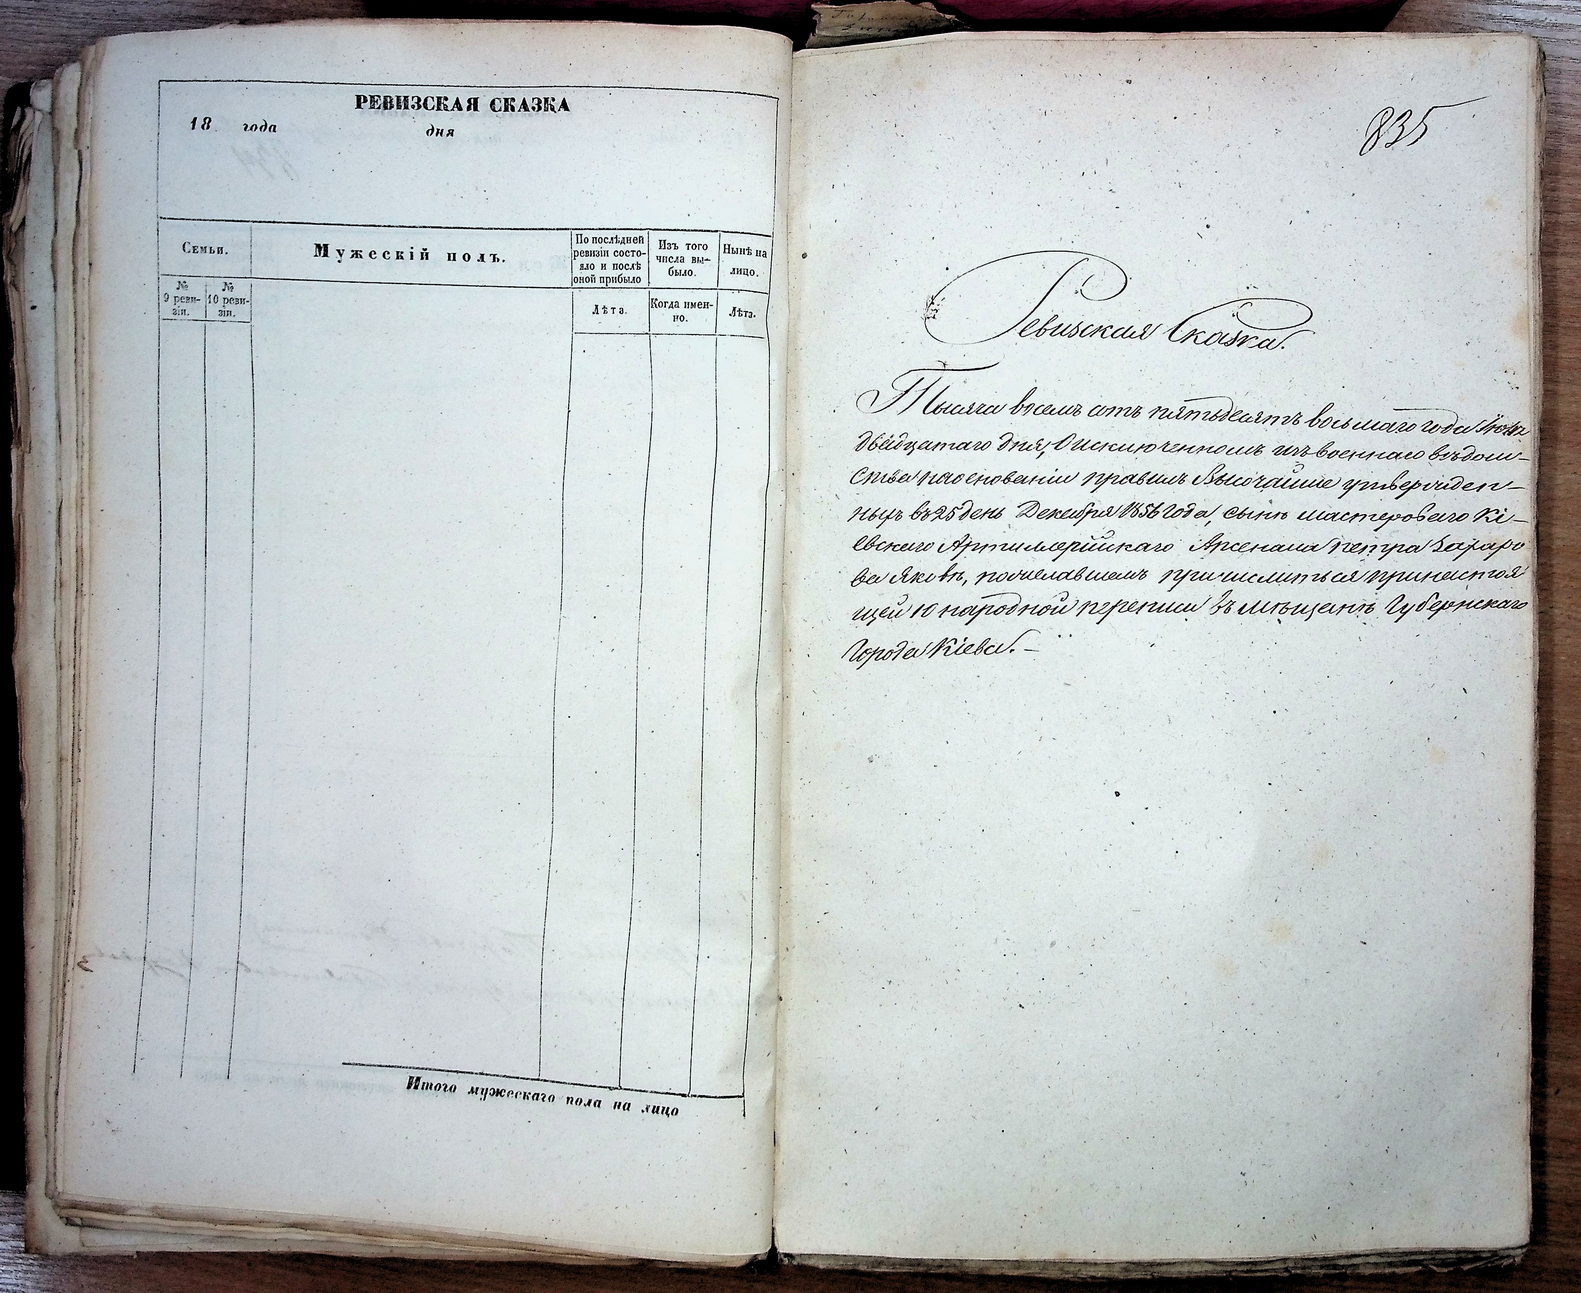 РЕВИЗСКАЯ СКАЗКА
18 года дня
Семьи.
Мужескій полъ.
По послѣдней
ревизіи состо-
яло и послѣ
оной прибыло
Изъ того
числа вы-
было.
Нынѣ на
лицо.
№
9 реви-
зіи.
№
10 реви-
зіи.
Лѣта.
Когда имен-
но.
Лѣта.
Итого мужескаго пола на лицо
835
Ревизская Сказка.
Тысяча восемь сотъ пятьдесятъ восьмаго года
двадцатаго дня, О исключенномъ изъ военнаго вѣдом-
ства на основаніи правилъ Высочайше утвержден-
ныхъ въ 25 день Декабря 1856 года, сынѣ мастероваго Кі-
евскаго Артиллерійскаго Арсенала Петра Захаро
ва Яковѣ, пожелавшемъ причислиться при настоя
щей 10 народной переписи въ мѣщанѣ Губернскаго
Города Кіева. –